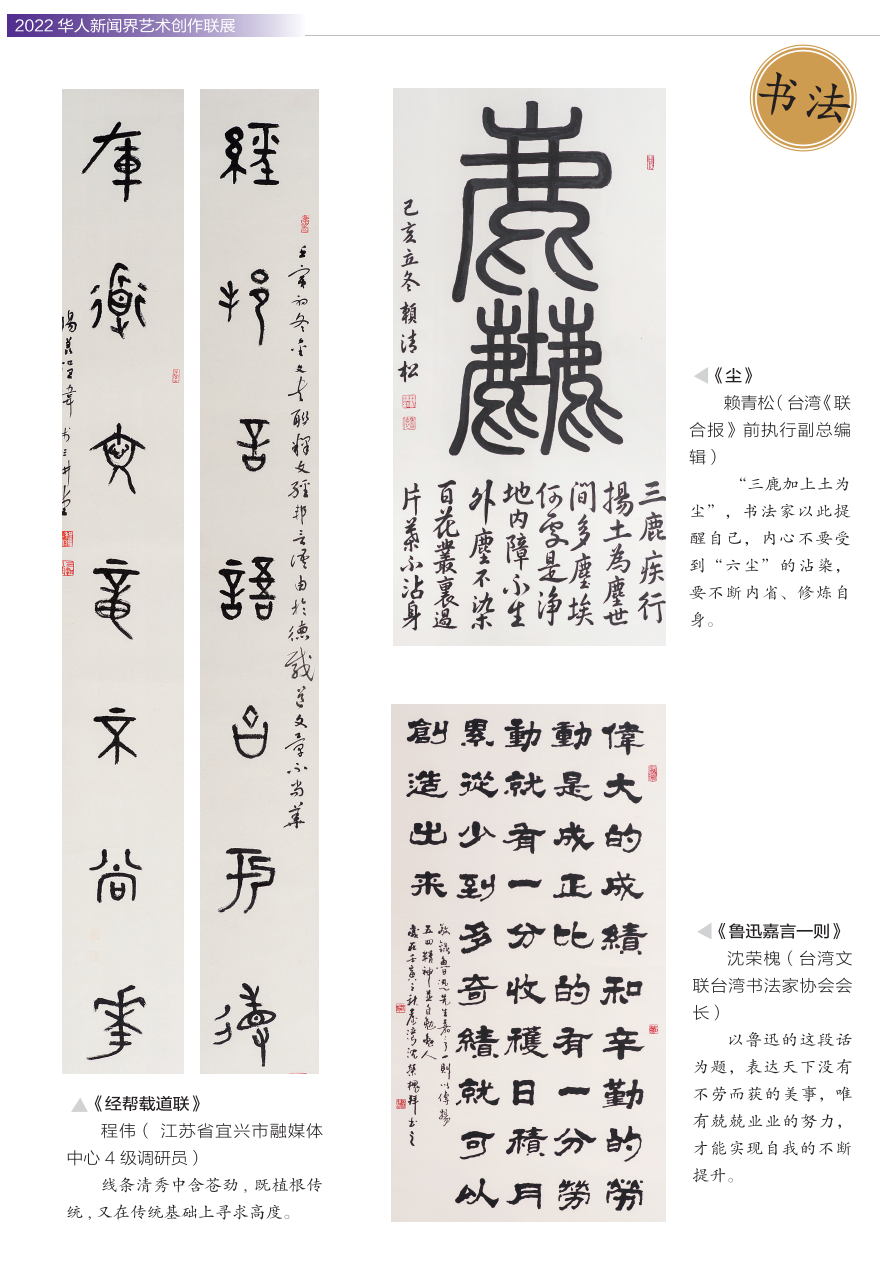 2022 华人新闻界艺术创作联展
书法
經邦言語由於德
載道文章不尚華
塵
己亥立冬 賴清松
三鹿疾行
揚土為塵世
間多塵埃
何處是淨
地内障不生
外塵不染
百花叢裏過
片葉不沾身
《尘》
赖青松（台湾《联
合报》前执行副总编
辑）
“三鹿加上土为
尘”，书法家以此提
醒自己，内心不要受
到“六尘”的沾染，
要不断内省、修炼自
身。
偉大的成績和辛勤的勞
動是成正比的有一分勞
動就有一分收穫日積月
累從少到多奇績就可以
創造出来
敬錄魯迅先生嘉言一則以傳揚
五四精神並自勉勉人
歲在壬寅之秋臺灣沈榮槐拜書之
《鲁迅嘉言一则》
沈荣槐（台湾文
联台湾书法家协会会
长）
以鲁迅的这段话
为题，表达天下没有
不劳而获的美事，唯
有兢兢业业的努力，
才能实现自我的不断
提升。
《经帮载道联》
程伟（ 江苏省宜兴市融媒体
中心 4 级调研员）
线条清秀中含苍劲，既植根传
统，又在传统基础上寻求高度。
壬寅初冬金文七言聯釋文經邦言語由於德載道文章不尚華